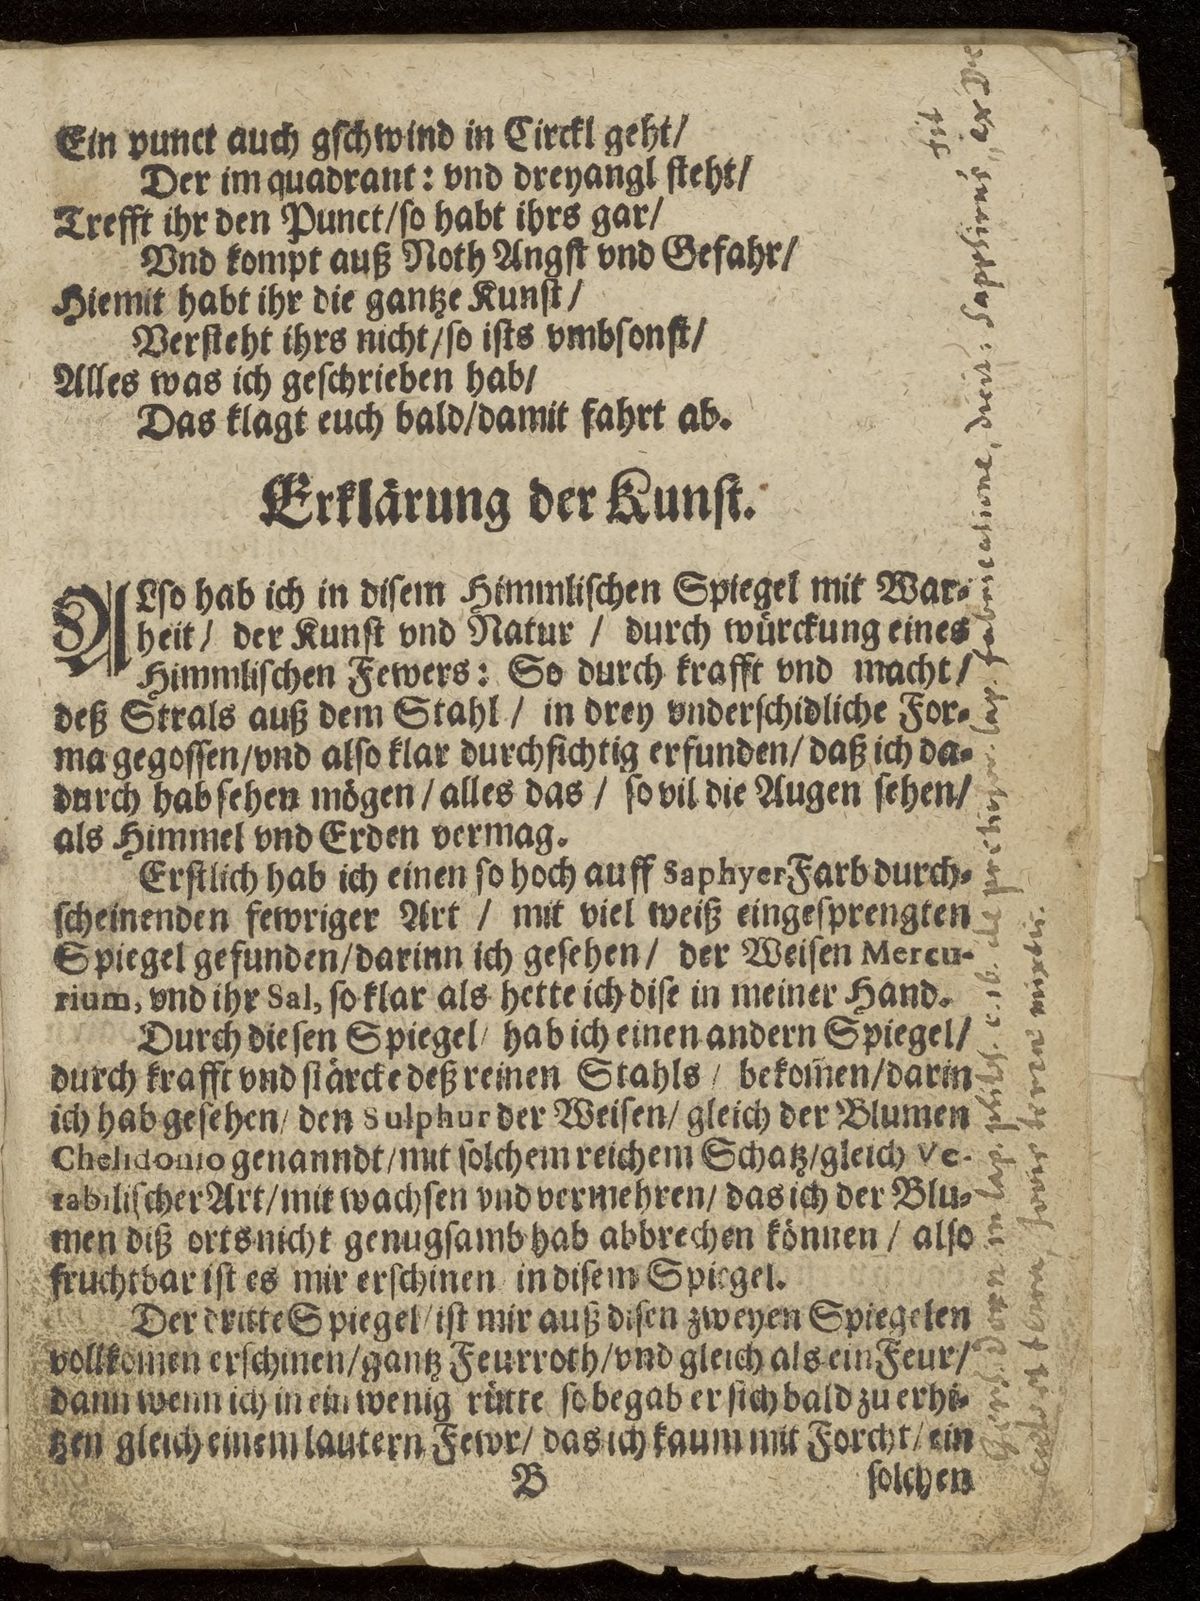 Ein punct auch gschwind in Circkl geht/
Der im quadrant: vnd dreyangl steht/
Trefft ihr den Punct/so habt ihrs gar/
Vnd kompt auß Noth Angst vnd Gefahr/
Hiemit habt ihr die gantze Kunst/
Versteht ihrs nicht/so ists vmbsonst/
Alles was ich geschrieben hab/
Das klagt euch bald/damit fahrt ab.
Erklärung der Kunst.
ALso hab ich in disem Himmlischen Spiegel mit War-
heit/ der Kunst vnd Natur / durch würckung eines
Himmlischen Fewers: So durch krafft vnd macht/
deß Strals auß dem Stahl / in drey vnderschidliche For-
ma gegossen/vnd also klar durchsichtig erfunden/daß ich da-
durch hab sehen mögen/alles das / so vil die Augen sehen/
als Himmel vnd Erden vermag.
Erstlich hab ich einen so hoch auff Saphyer Farb durch-
scheinenden fewriger Art / mit viel weiß eingesprengten
Spiegel gefunden/darinn ich gesehen/ der Weisen Mercu-
rium, vnd ihr Sal, so klar als hette ich dise in meiner Hand.
Durch diesen Spiegel/ hab ich einen andern Spiegel/
durch krafft vnd stärcke deß reinen Stahls / bekom̃en/darin
ich hab gesehen/ den Sulphur der Weisen/ gleich der Blumen
Chelidonio genanndt/mit solchem reichem Schatz/gleich Ve-
tabilischer Art/mit wachsen vnd vermehren/ das ich der Blu-
men diß orts nicht genugsamb hab abbrechen können / also
fruchtbar ist es mir erschinen in disem Spiegel.
Der dritte Spiegel/ist mir auß disen zweyen Spiegelen
vollkomen erschinen/gantz Feurroth/vnd gleich als ein Feur/
dann wenn ich in ein wenig rütte so begab er sich bald zu erhi-
tzen gleich einem lautern Fewr/ das ich kaum mit Forcht/ein
B solchen
fit
lap. fabricatione, dicit: Sapphirus, ex